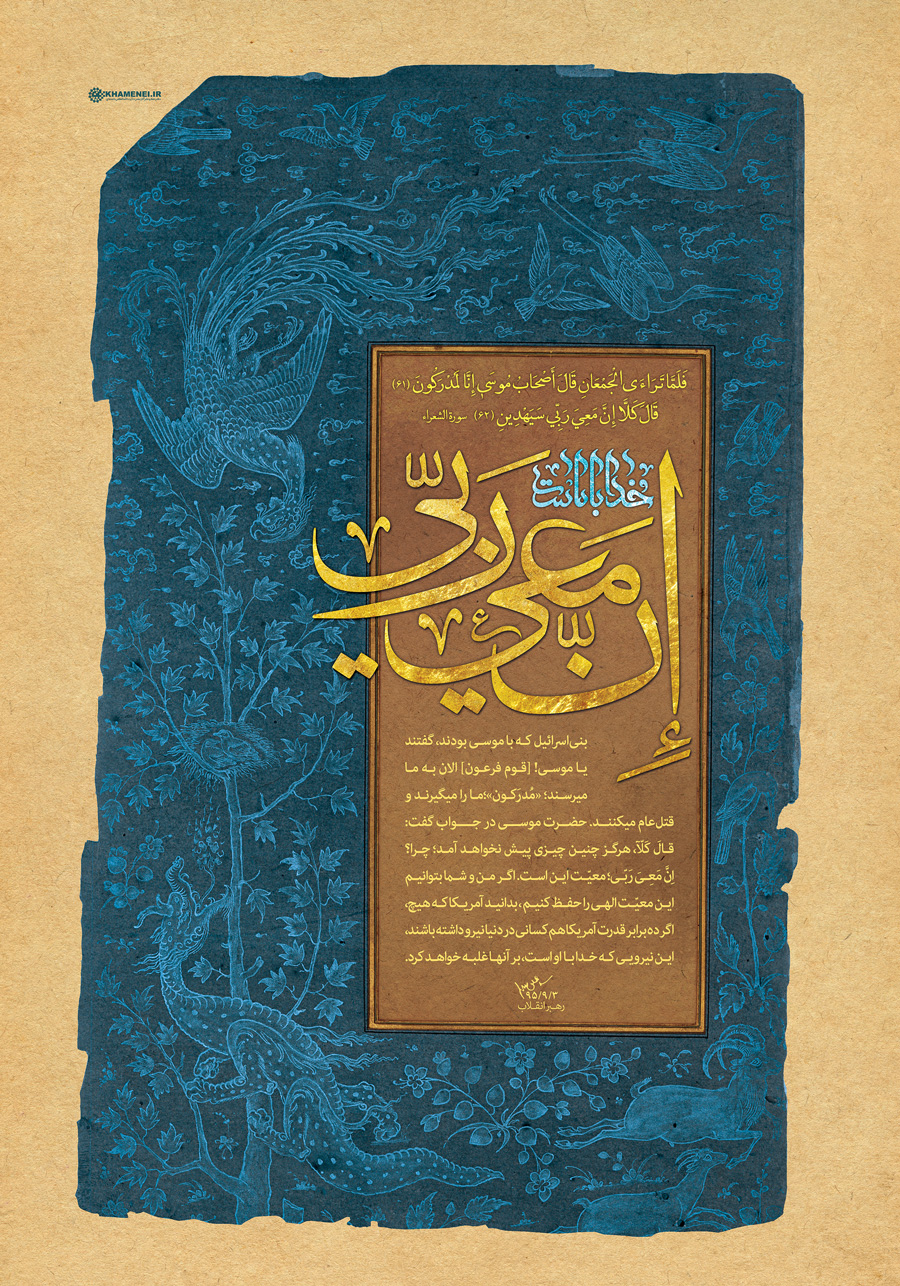 KHAMENEI.IR
فَلَمَّا تَرَاءَى الْجَمْعَانِ قَالَ أَصْحَابُ مُوسَىٰ إِنَّا لَمُدْرَكُونَ (۶۱)
قَالَ كَلَّا إِنَّ مَعِيَ رَبِّي سَيَهْدِينِ (۶۲) سورة الشعراء
خدا با ماست
إِنَّ مَعِيَ رَبِّي
بنی‌اسرائیل که با موسی بودند، گفتند
یا موسی! [قوم فرعون] الان به ما
میرسند؛ «مُدرَکون»؛ ما را میگیرند و
قتل‌عام میکنند. حضرت موسی در جواب گفت:
قالَ کَلّآ، هرگز چنین چیزی پیش نخواهد آمد؛ چرا؟
اِنَّ مَعِیَ رَبّی؛ معیّت این است. اگر من و شما بتوانیم
این معیّت الهی را حفظ کنیم، بدانید آمریکا که هیچ،
اگر ده برابر قدرت آمریکا هم کسانی در دنیا نیرو داشته باشند،
این نیرویی که خدا با او است، بر آنها غلبه خواهد کرد.
۹۵/۹/۳
رهبر انقلاب